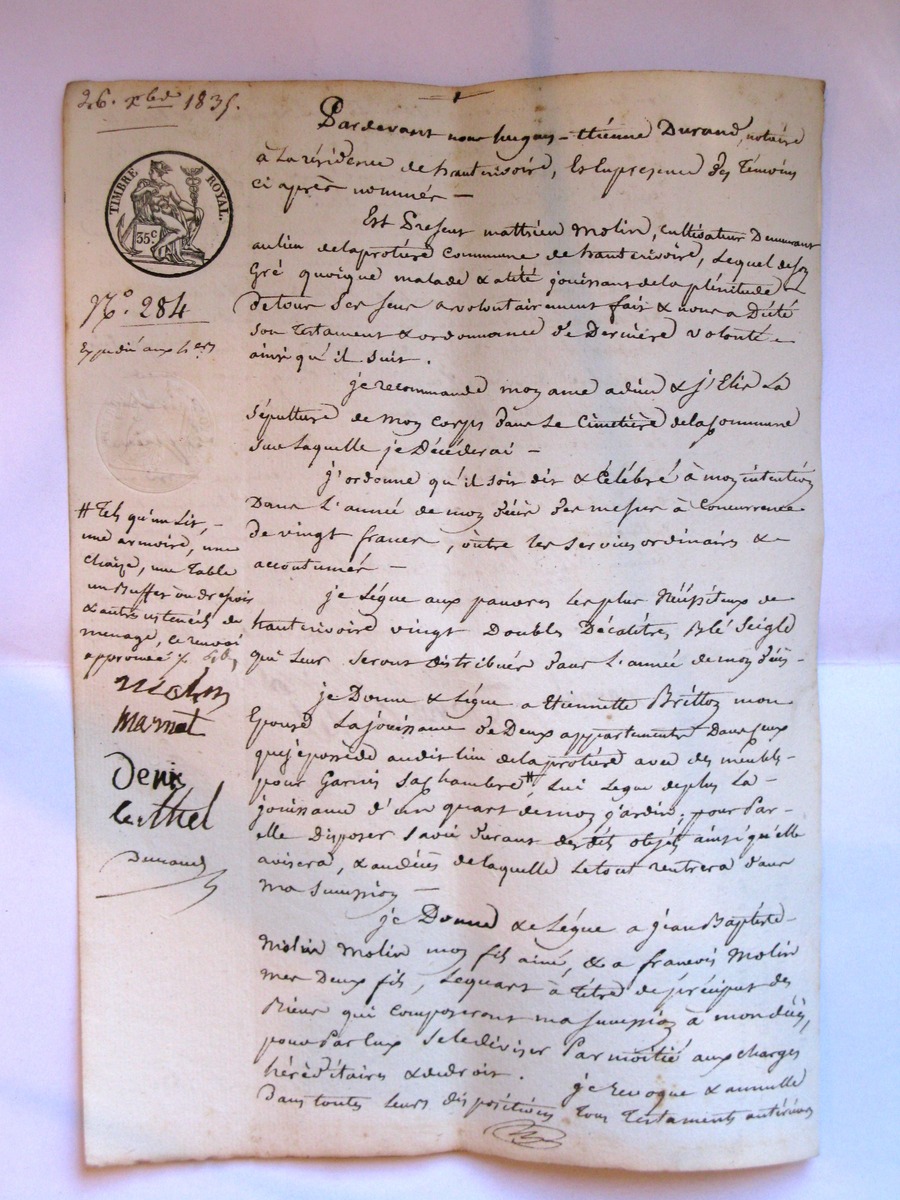 26. xbre 1835.
TIMBRE ROYAL.
35c
No. 284
Expedié aux h.ers
Pardevant nous hugues-Etienne Durand, notaire
à La résidence de hauterivoire, & En presence des Témoins
ci après nommés —
Est Present mathieu molin, cultivateur Demeurant
au lieu de laprotière commune de hauterivoire, Lequel de son
Gré quoique malade & alité jouissant de la plénitude
de tour Ses Sens a volontairement fait & nous a Dicté
son Testament & ordonnance de Dernière volonté
ainsi qu'il suit.
je recommande mon ame a dieu & j'Elis La
Sépulture de mon corps dans Le Cimetière de la Commune
sur Laquelle je Décéderai —
j'ordonne qu'il soit dit & Célébré à mon intention
Dans L'année de mon décès des messes à Concurrence
de vingt francs, outre les services ordinaires &
accoutumés —
je Légue aux pauvres les plus Nécessiteux de
hauterivoire vingt Doubles Décalitres Blé Seigle
qui Leur seront distribués dans L'année de mon décès —
je Donne & Légue a Etiennette Brillon mon
Epouse La jouissance de Deux appartements Dans Ceux
que je possède au dit lieu de la protière avec des meubles
pour Garnir Sa chambre # Lui Legue de plus La
jouissance d'un quart de mon jardin; pour Par
elle Disposer Sa vie durant des dits objets ainsi qu'elle
avisera, & au décès de laquelle Le tout rentrera dans
ma Succession —
je Donne & Légue a jean Baptiste
Molin Molin mon fils ainé, & a francois Molin
mes Deux fils, Le quart à titre de préciput des
Biens qui Composeront ma succession à mon décès,
pour Par Eux Se le diviser Par moitié aux charges
héréditaires & de droit. je Revoque & annulle
Dans toutes Leurs dispositions tous Testaments antérieurs
# Tels qu'un Lit, —
une armoire, une
chaize, une Table
un Buffet ou drepois
& autres ustencils de
menage, Ce renvoi
approuvé
Molin
Marnat
Denis
Berthel
Durand